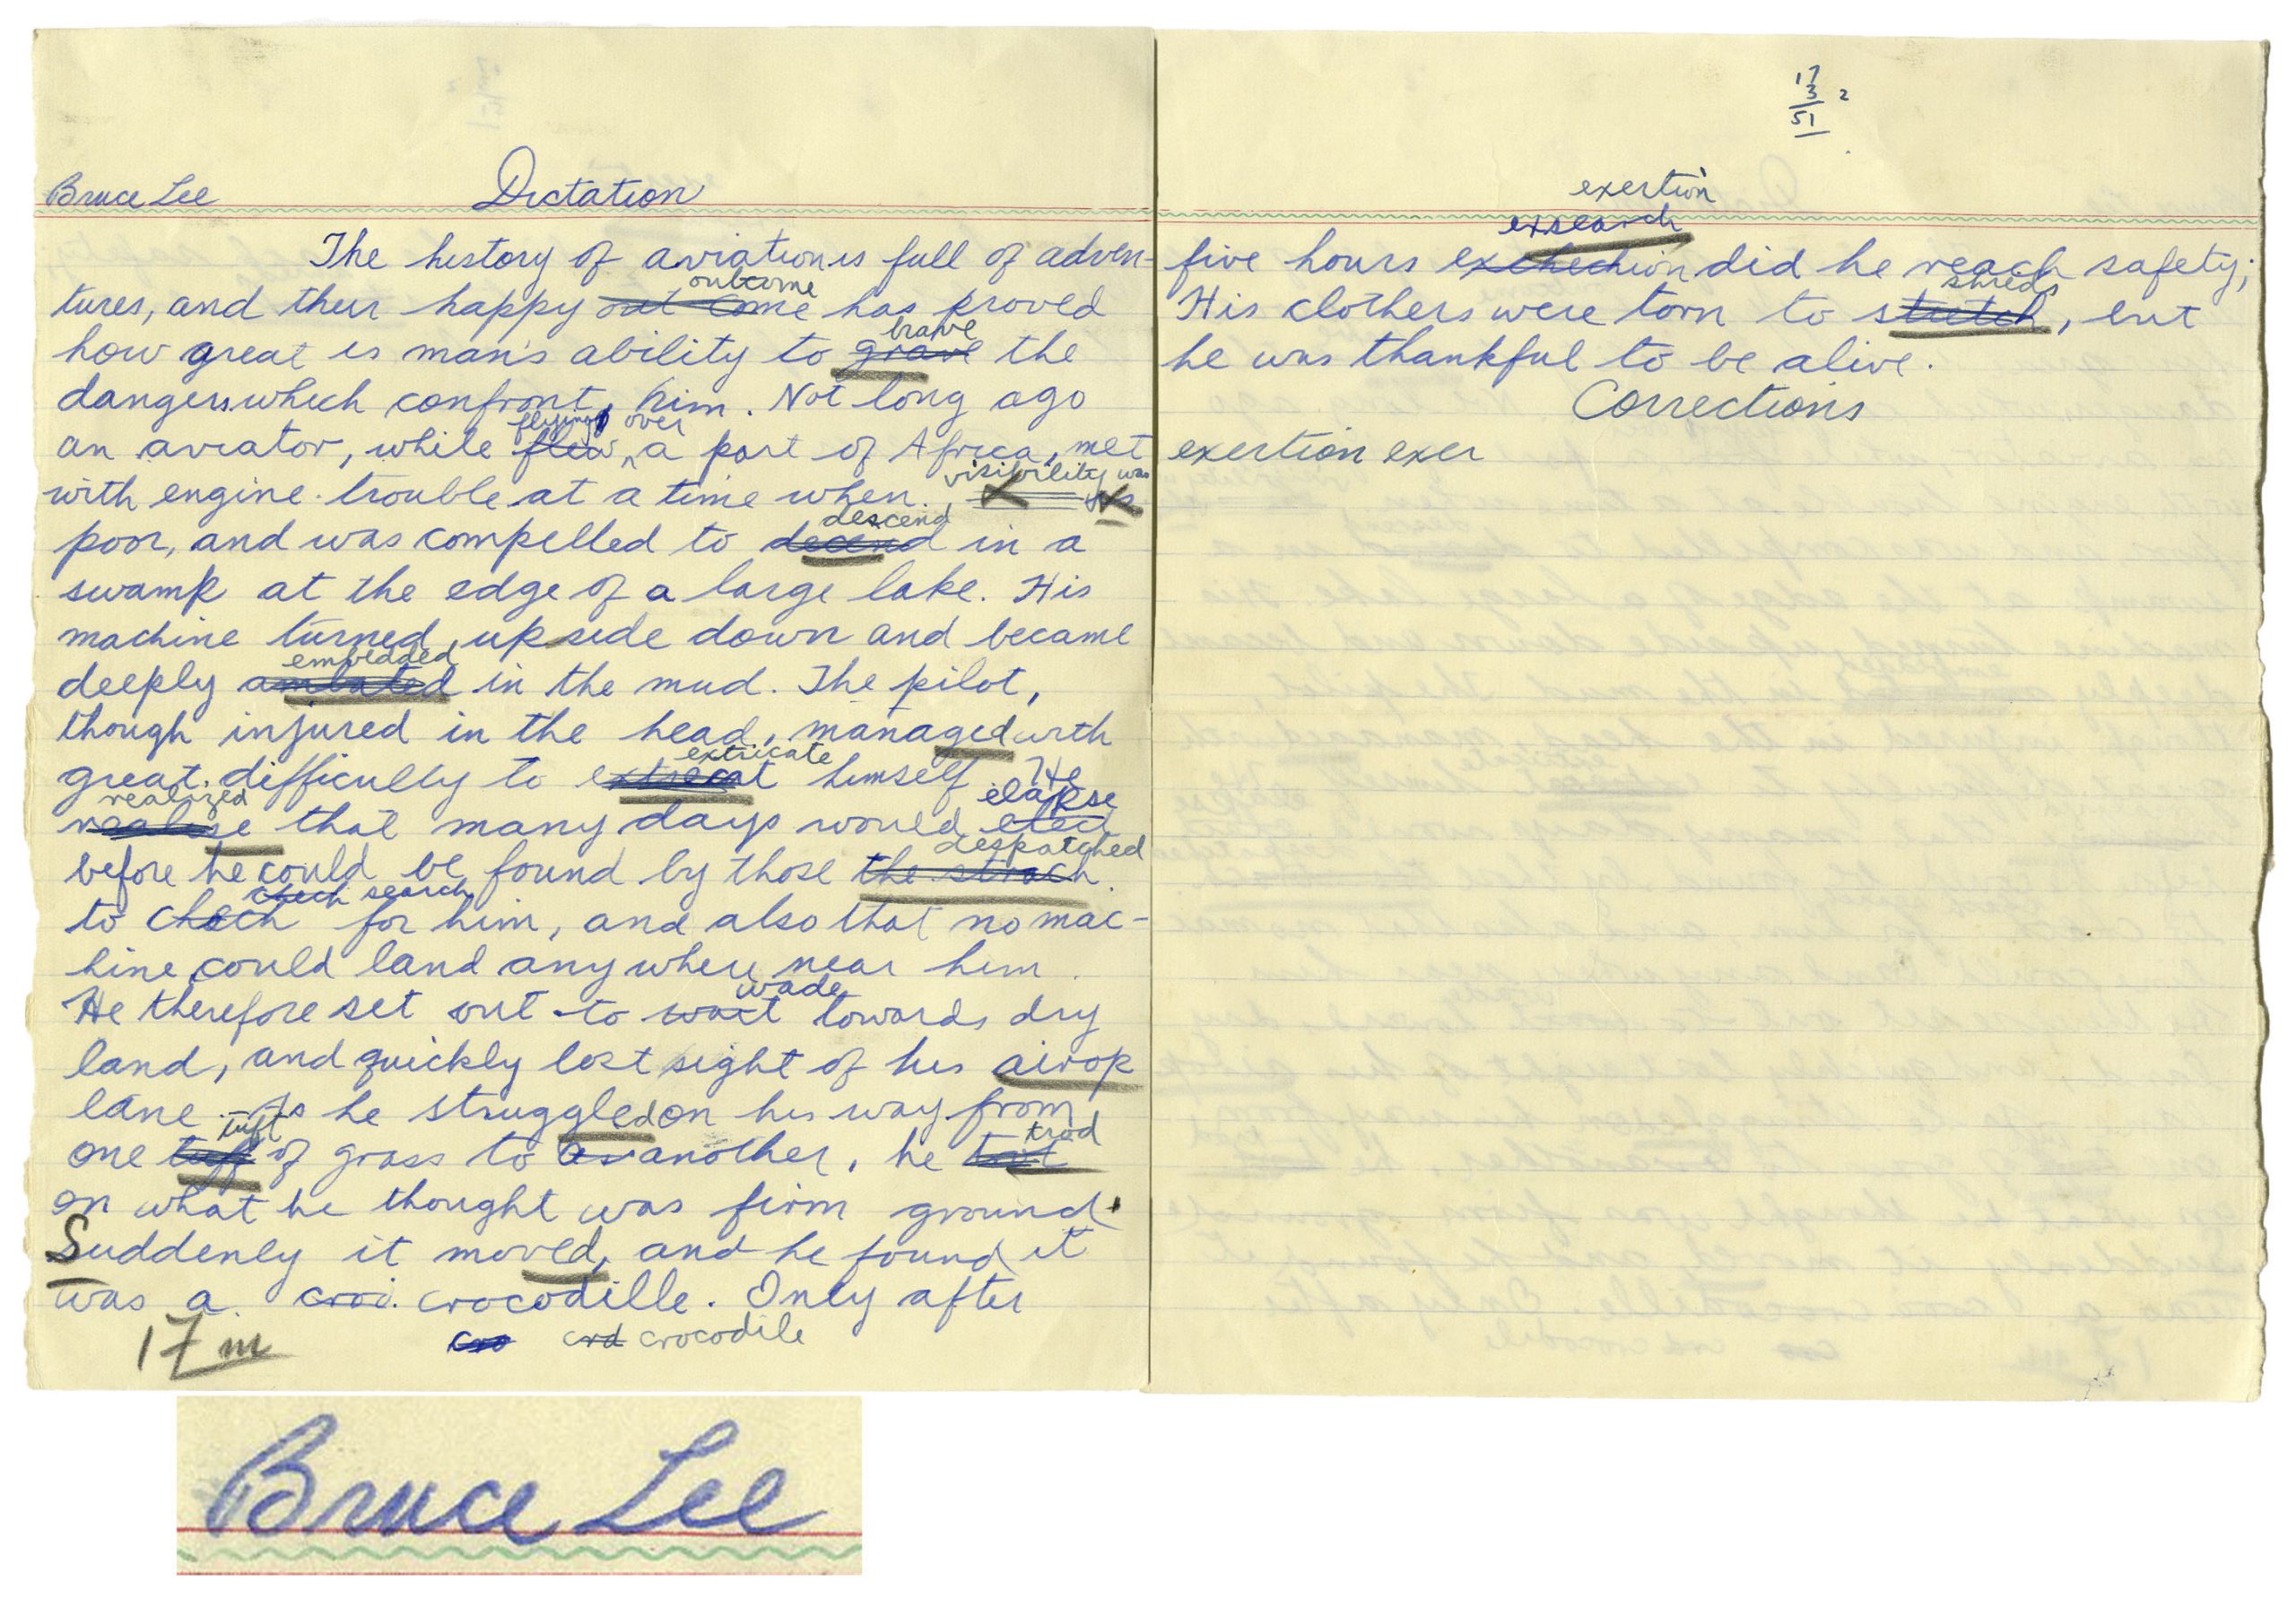 Bruce Lee Dictation
The history of aviation is full of adven-
outcome
tures, and their happy out come has proved
brave
how great is man's ability to grave the
dangers which confront him. Not long ago
flying over
an aviator, while flew a part of Africa, met
visibility was
with engine trouble at a time when
descend
poor, and was compelled to decend in a
swamp at the edge of a large lake. His
machine turned upside down and became
embedded
deeply ambated in the mud. The pilot,
though injured in the head, managed with
extricate
great difficully to extrecat himself. He
realized elapse
realise that many days would
despatched
before he could be found by those the strach.
check search
to chech for him, and also that no mac-
hine could land anywhere near him.
wade
He therefore set out to wait towards dry
land, and quickly lost sight of his airop
lane. As he struggled on his way from
tuft trod
one tuff of grass to another, he
on what he thought was firm ground.
Suddenly it moved, and he found it
was a croi. crocodille. Only after
17 m cro crd crocodile
17
3 2
51
exertion
exsearch
five hours exchechion did he reach safety;
shreds
His clothers were torn to stretch, but
he was thankful to be alive.
Corrections
exertion exer
Bruce Lee